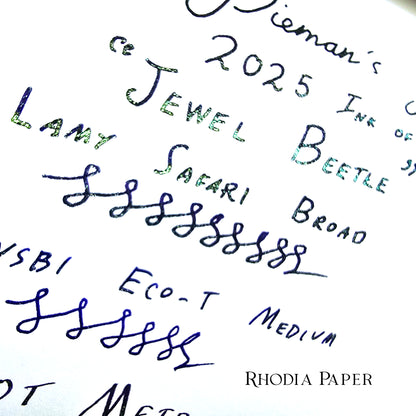 Dieman's
2025 Ink of
"Jewel Beetle
Lamy Safari Broad
Eco-T Medium
Rhodia Paper